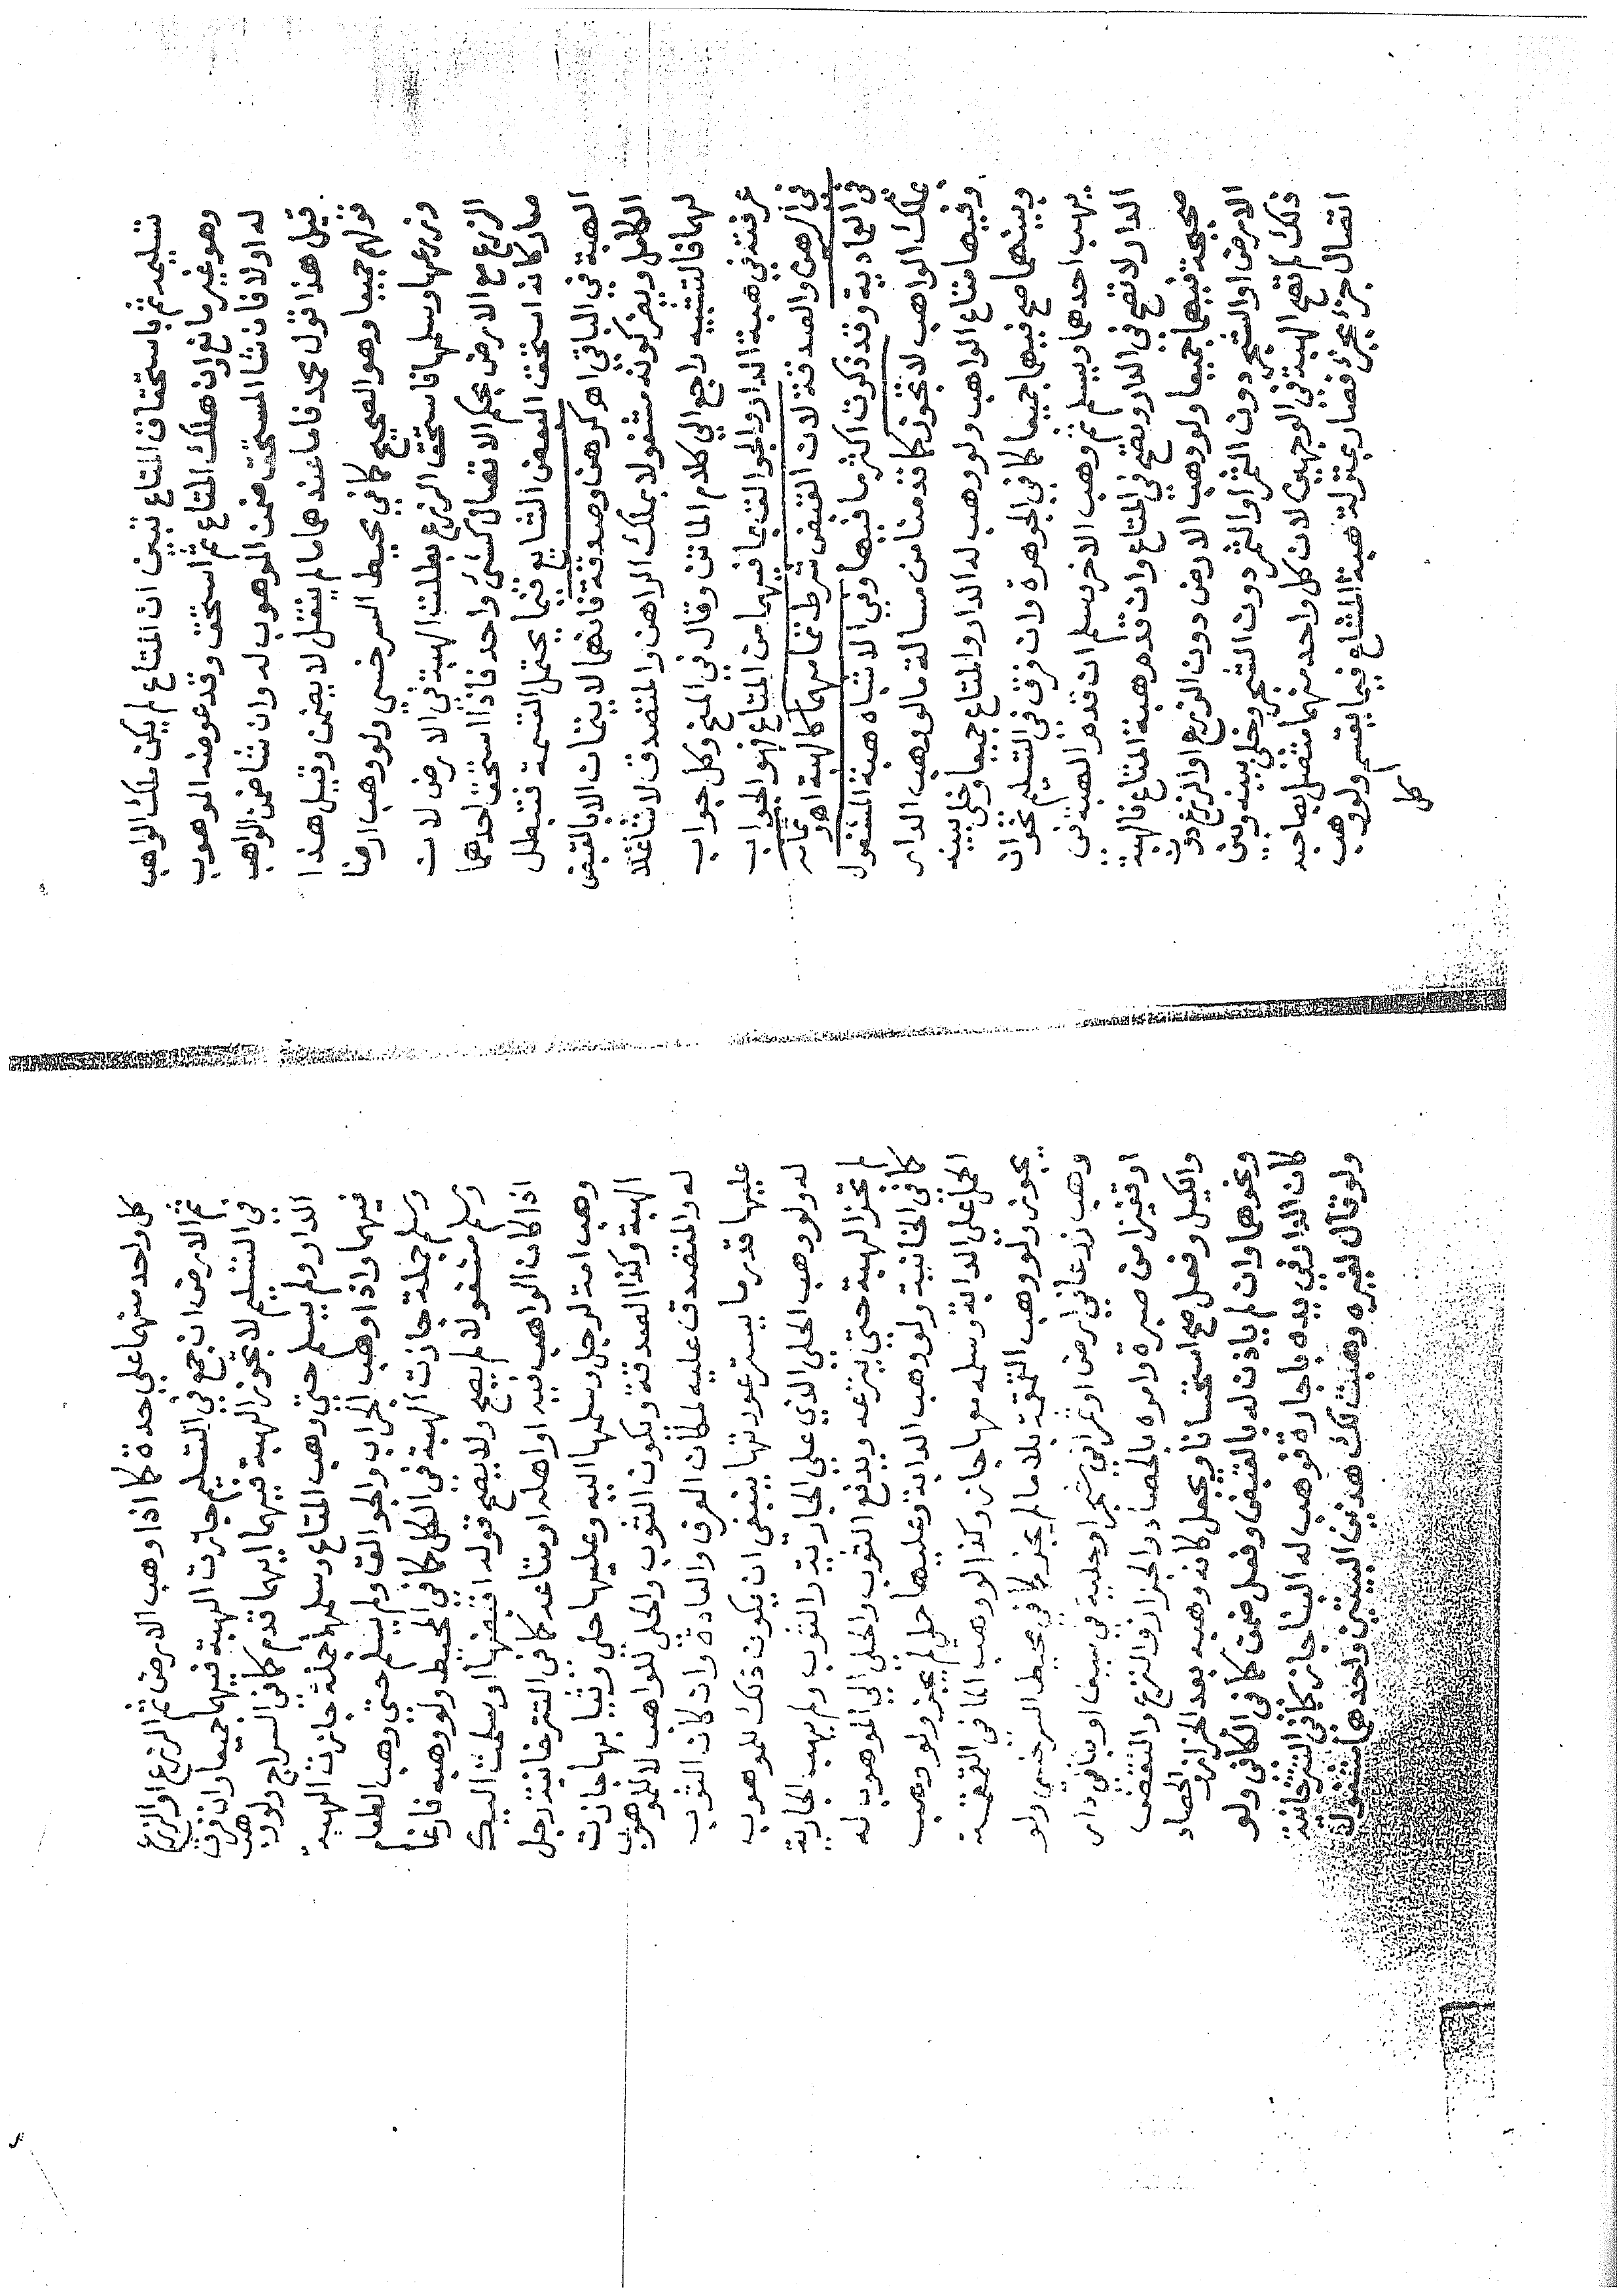 تسليمه ثم باستحقاق المتاع تبين ان المتاع لم يكن ملك الواهب
وهو غير مانع وان هلك المتاع ثم استحق وقد عوضه الموهوب
له اولا فان شا المستحق ضمن الموهوب له وان شا ضمن الواهب
قيل هذا قول محمد فاما عندهما ما لم ينتقل لا يضمن وقيل هذا
قولهم جميعا وهو الصحيح كما في محيط السرخسي ولو وهب ارضا
وزرعها وسلمها فاستحق الزرع بطلت الهبة في الارض لان
الزرع مع الارض بحكم الاتصال كشئ واحد فاذا استحق احدهما
صار كانه استحق البعض الشايع فيما يحتمل القسمة فتبطل
الهبة في الباقي اهـ كرهن وصدقة فانهما لا يتمان الا بالقبض
الكامل ويضر كونه مشغولا بملك الراهن والمتصدق لا شاغلا
لهما فالتشبيه راجع الي كلام الماتن وقال في المنح وكل جواب
عرفته في هبة الدار والجوالق بما فيهما من المتاع فهو الجواب
في الرهن والصدقة لان القبض شرط تمامهما كالهبة اهـ تمامه
في العمادية وقد ذكرت اكثر ما فيها وفي الاشباه هبة المشغول
بملك الواهب لا تجوز كما قدمنا من مسالة ما لو وهب الدار
وفيها متاع الواهب ولو وهب له الدار والمتاع جميعا وخلي بينه
وبينهما صح فيهما جميعا كما في الجوهرة وان فرق في التسليم نحو ان
يهب احدهما ويسلم ثم وهب الاخر يسلم ان قدم الهبة في
الدار لا تصح في الدار وتصح في المتاع وان قدم هبة المتاع فالهبة
صحيحة فيهما جميعا ولو وهب الارض دون الزرع او الزرع دون
الارض او الشجر دون الثمر او الثمر دون الشجر وخلي بينه وبين
ذلك لم تصح الهبة في الوجهين لان كل واحد منهما متصل بصاحبه
اتصال جزء بجزء فصار بمنزلة هبة المشاع فيما يقسم ولو وهب
كل
كل واحد منهما علي حدة كما اذا وهب الارض ثم الزرع او الزرع
ثم الارض ان جمع في التسليم جازت الهبة فيهما جميعا وان فرق
في التسليم لا تجوز الهبة فيهما ايهما قدم كما في السراج ولو وهب
الدار ولم يسلم حتي وهب المتاع وسلمها جملة جازت الهبة
فيهما واذا وهب الجراب والجوالق ولم يسلم حتي وهب الطعام
وسلم جملة جازت الهبة في الكل كما في المحيط ولو وهبه فارغا
وسلم مشغولا لم يصح ولا يصح قوله اقبضها او سلمت اليك
اذا كان الواهب فيه او اهله او متاعه كما في التترخانية رجل
وهب امة لرجل وسلمها اليه وعليها حلي وثيابها جازت
الهبة وكذا الصدقة ويكون الثوب والحلي للواهب لا للموهوب
له والمتصدق عليه لمكان العرف والعادة وان كان الثوب
عليها قدر ما يستر عورتها ينبغي ان يكون ذلك للموهوب
له ولو وهب الحلي الذي علي الجارية والثوب ولم يهب الجارية
لم تجز الهبة حتي ينزعه ويدفع الثوب والحلي الي الموهوب له
كما في الخانية ولو وهب الدابة وعليها حلي لم يجز ولو وهب
الحمل علي الدابة وسلمه معها جاز وكذا لو وهب الما في القمقمة
يجوز ولو وهب القمقمة بلا ما لم يجز كما في محيط السرخسي ولو
وهب زرعا في ارض او ثمرا في شجر او حلية في سيف او بنا في دار
او قفيزا من صبرة وامره بالحصاد والجزاز والنزع والنقض
والكيل وفعل صح استحسانا ويجعل كانه وهبه بعد الجزاز والحصاد
ونحوهما وان لم ياذن له بالقبض وفعل ضمن كما في الكافي ولو
كان الدار في يده باجارة فوهب له البنا جاز كما في التترخانية
ولو قال لغيره وهبت لك هذين البيتين واحدهما مشغول